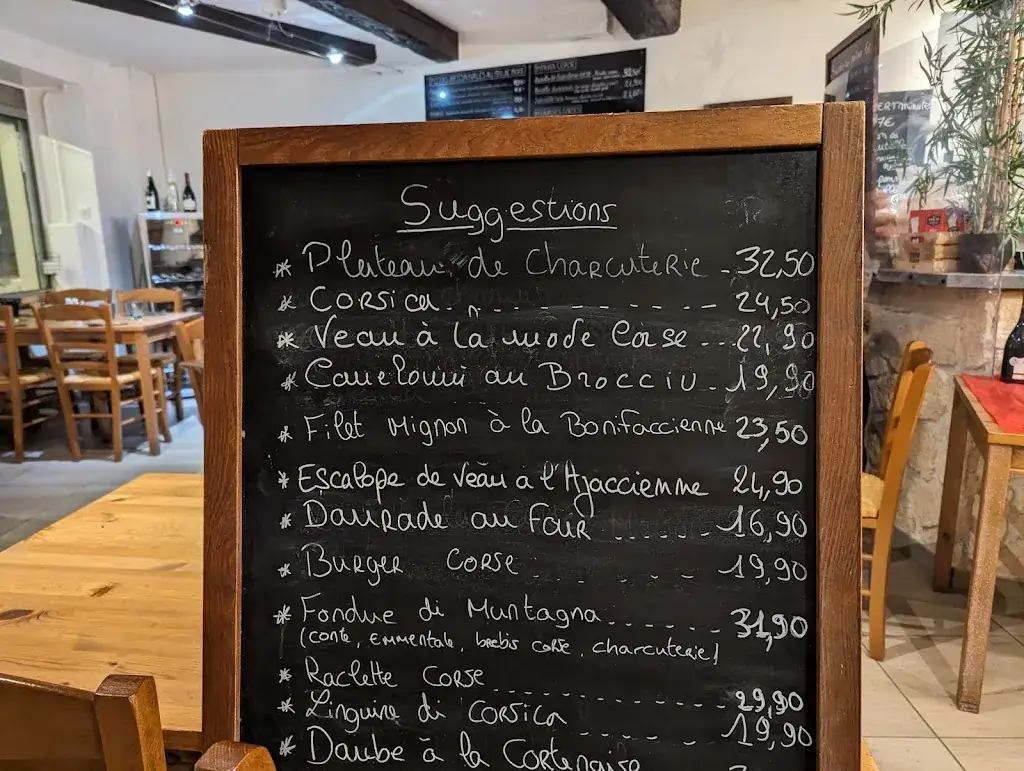 Suggestions
* Plateau de Charcuterie - 32,50
* Corsica - - - - - - - - 24,50
* Veau à la mode Corse - - - 22,90
* Cannelonni au Brocciu - 19,90
* Filet Mignon à la Bonifaccienne 23,50
* Escalope de veau à l'Ajaccienne 24,90
* Daurade au Four - - - - - - 16,90
* Burger Corse - - - - - - 19,90
* Fondue di Muntagna - - - - - - 31,90
(conté, Emmentale, brebis corse, charcuterie)
* Raclette Corse - - - - - - - - 29,90
* Linguine di Corsica - - - - - 19,90
* Daube à la Cortenaise